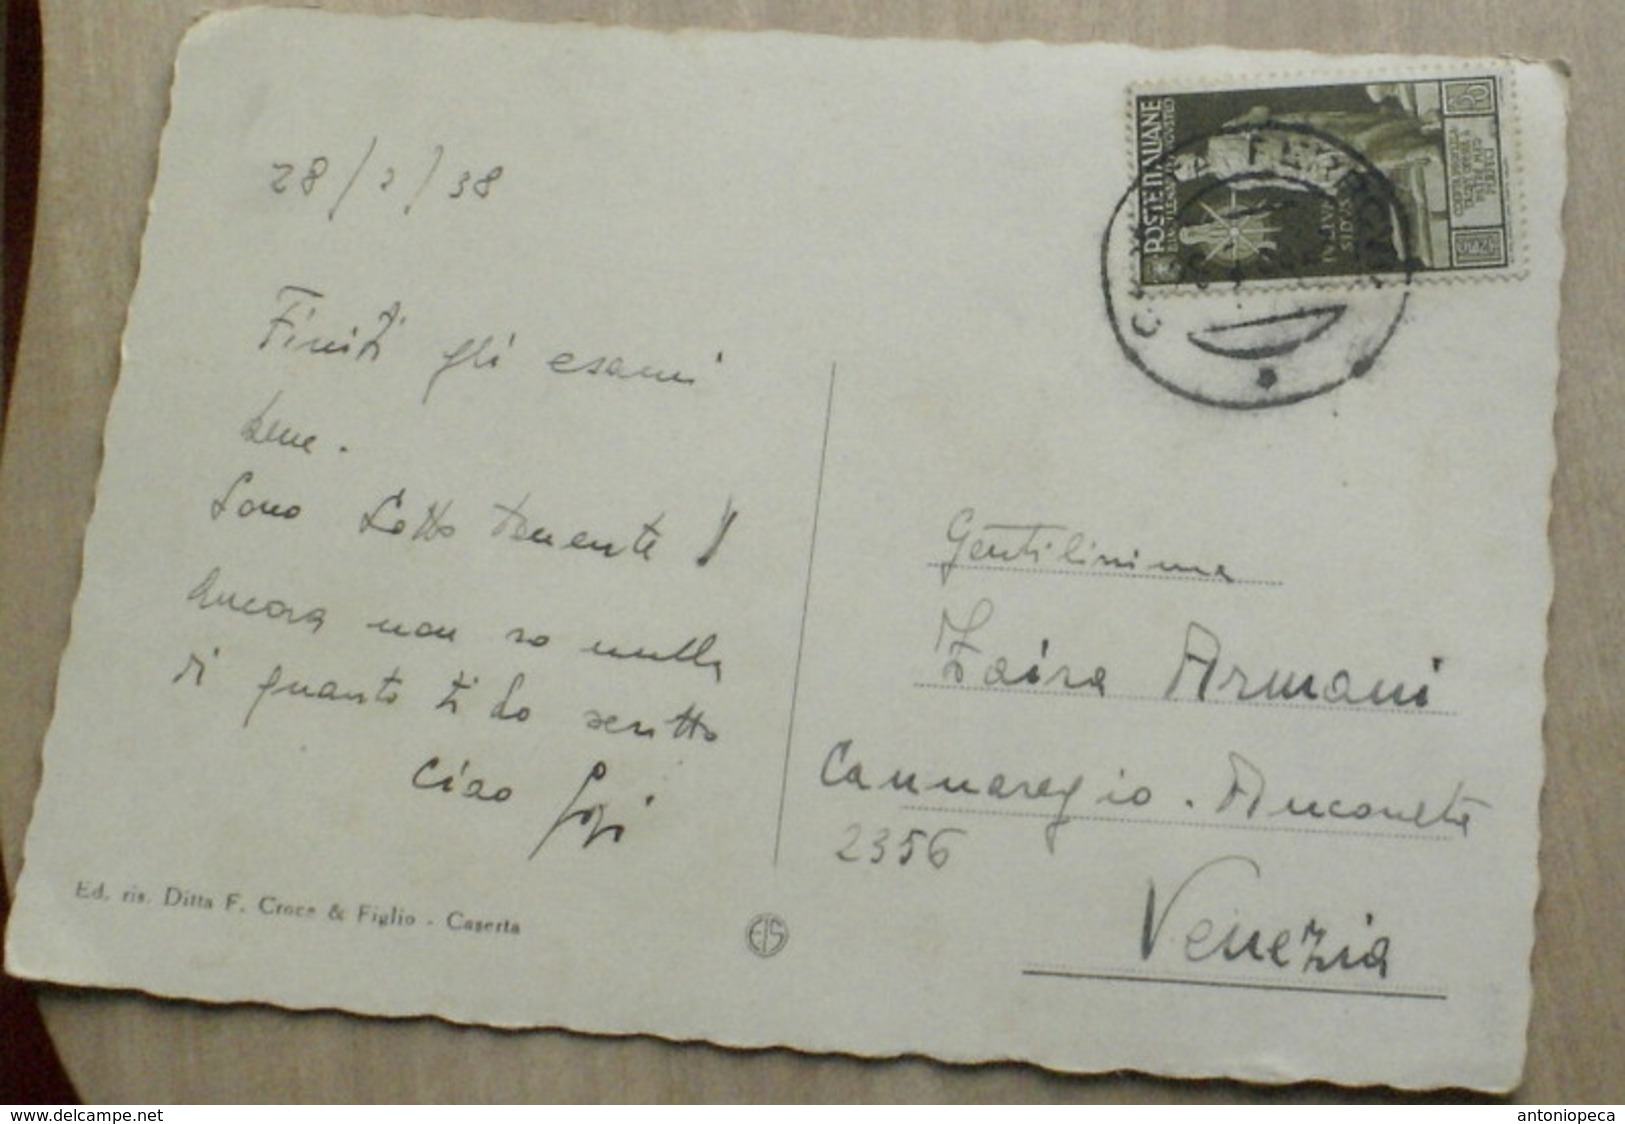 28/2/38
Finiti gli esami
bene.
Sono Sotto tenente!
Ancora non so nulla
di quanto ti ho scritto
Ciao
Ed. ris. Ditta F. Croce & Figlio - Caserta
EIS
POSTE ITALIANE
Gentilissima
Zaira Armani
Cannaregio. Anconeta
2356
Venezia
www.delcampe.net
antoniopeca